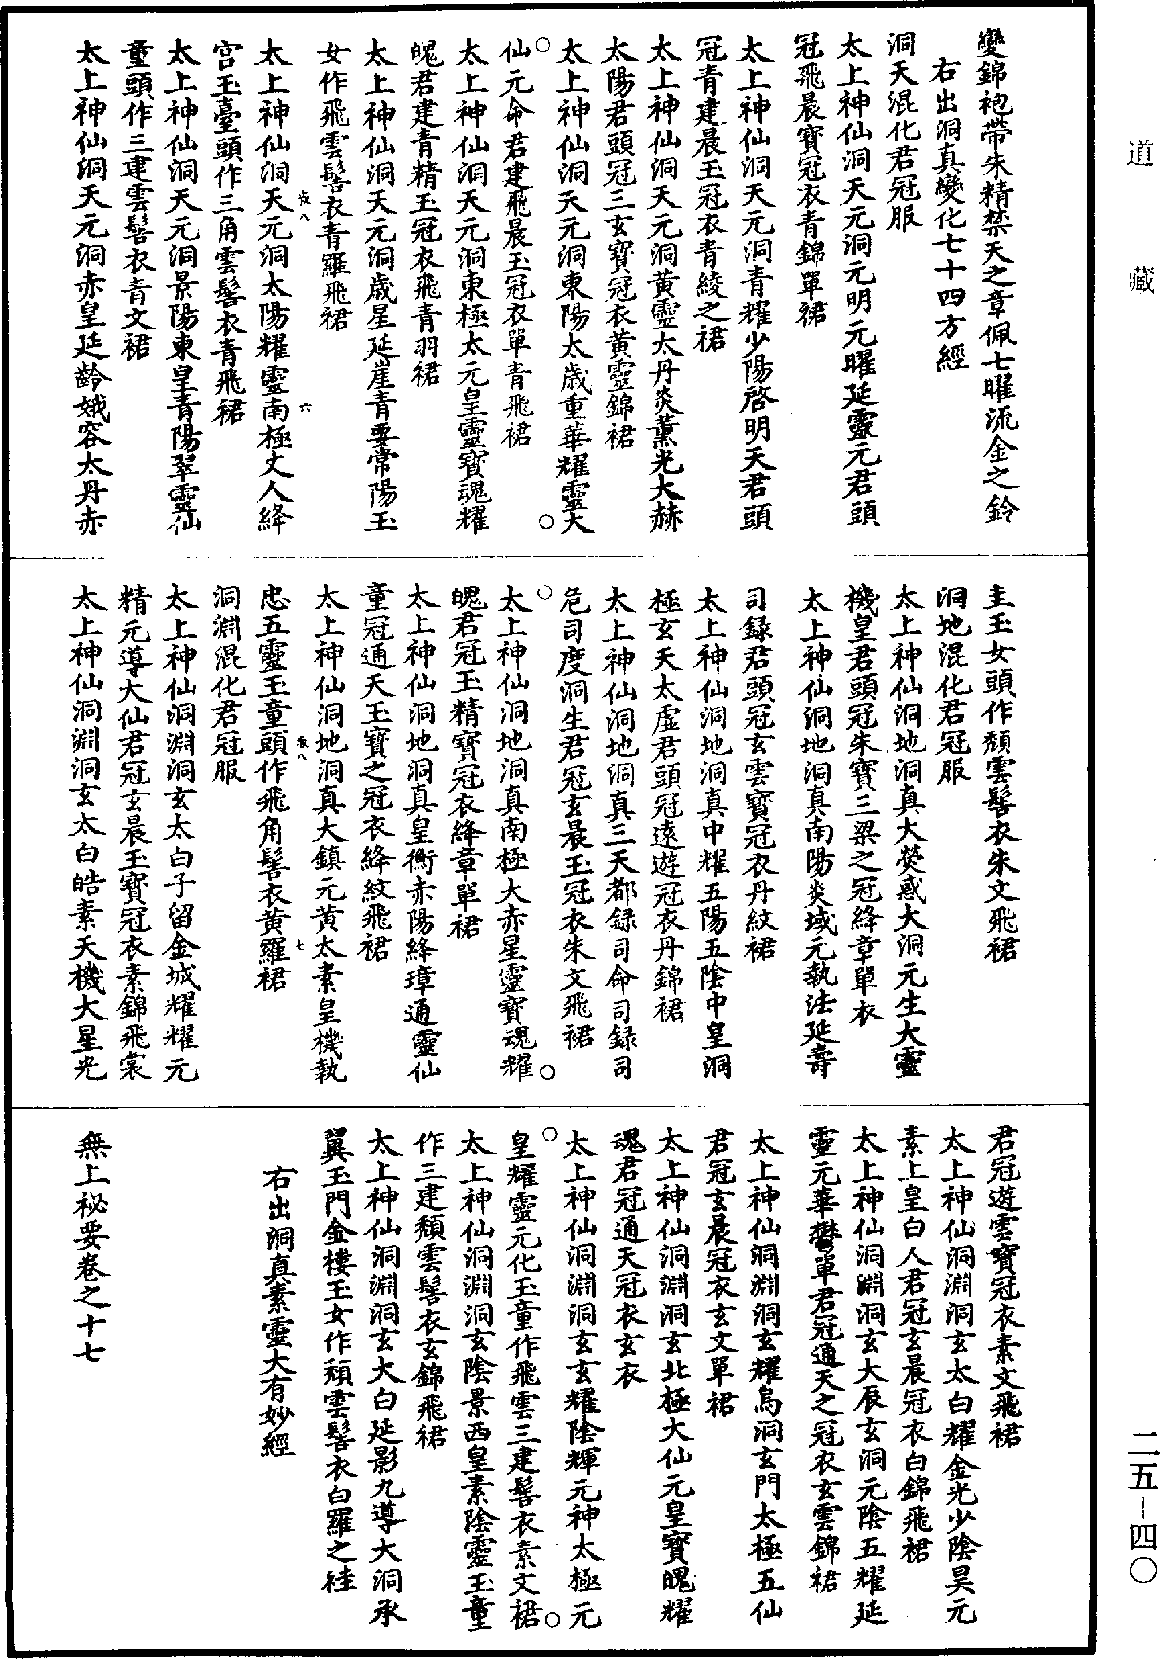 變錦袍帶朱精禁天之章佩七曜流金之鈴
右出洞真變化七十四方經
洞天混化君冠服
太上神仙洞天元洞元明元曜延靈元君頭
冠飛晨寶冠衣青錦單裙
太上神仙洞天元洞青耀少陽啓明天君頭
冠青建晨玉冠衣青綾之裙
太上神仙洞天元洞黃靈太丹炎薰光大赫
太陽君頭冠三玄寶冠衣黃靈錦裙
太上神仙洞天元洞東陽太歲重華耀靈大
仙元命君建飛晨玉冠衣單青飛裙
太上神仙洞天元洞東極太元皇靈寶魂耀
魄君建青精玉冠衣飛青羽裙
太上神仙洞天元洞歲星延崖青要常陽玉
女作飛雲髻衣青羅飛裙
太上神仙洞天元洞太陽耀靈南極丈人絳
宮玉臺頭作三角雲髻衣青飛裙
太上神仙洞天元洞景陽東皇青陽翠靈仙
童頭作三建雲髻衣青文裙
太上神仙洞天元洞赤皇延齡娥容太丹赤
主玉女頭作頹雲髻衣朱文飛裙
洞地混化君冠服
太上神仙洞地洞真大熒惑大洞元生大靈
機皇君頭冠朱寶三梁之冠絳章單衣
太上神仙洞地洞真南陽炎域元執法延壽
司錄君頭冠玄雲寶冠衣丹紋裙
太上神仙洞地洞真中耀五陽五陰中皇洞
極玄天太虛君頭冠遠遊冠衣丹錦裙
太上神仙洞地洞真三天都録司命司録司
危司度洞生君冠玄晨玉冠衣朱文飛裙
太上神仙洞地洞真南極大赤星靈寶魂耀
魄君冠玉精寶冠衣絳章單裙
太上神仙洞地洞真皇衡赤陽絳璋通靈仙
童冠通天玉寶之冠衣絳紋飛裙
太上神仙洞地洞真大鎮元黃太素皇機執
忠五靈玉童頭作飛角髻衣黃羅裙
洞淵混化君冠服
太上神仙洞淵洞玄太白子留金城耀耀元
精元導大仙君冠玄晨玉寶冠衣素錦飛裳
太上神仙洞淵洞玄太白皓素天機大星光
君冠遊雲寶冠衣素文飛裙
太上神仙洞淵洞玄太白耀金光少陰昊元
素上皇白人君冠玄晨冠衣白錦飛裙
太上神仙洞淵洞玄大辰玄洞元陰五耀延
靈元華鬱單君冠通天之冠衣玄雲錦裙
太上神仙洞淵洞玄耀烏洞玄門太極五仙
君冠玄晨冠衣玄文單裙
太上神仙洞淵洞玄北極大仙元皇寶魄耀
魂君冠通天冠衣玄衣
太上神仙洞淵洞玄玄耀陰輝元神太極元
皇耀靈元化玉童作飛雲三建髻衣素文裙
太上神仙洞淵洞玄陰景西皇素陰靈玉童
作三建頹雲髻衣玄錦飛裙
太上神仙洞淵洞玄大白延影九導大洞承
翼玉門金樓玉女作頹雲髻衣白羅之袿
右出洞真素靈大有妙經
無上祕要卷之十七
道藏
二五－四〇